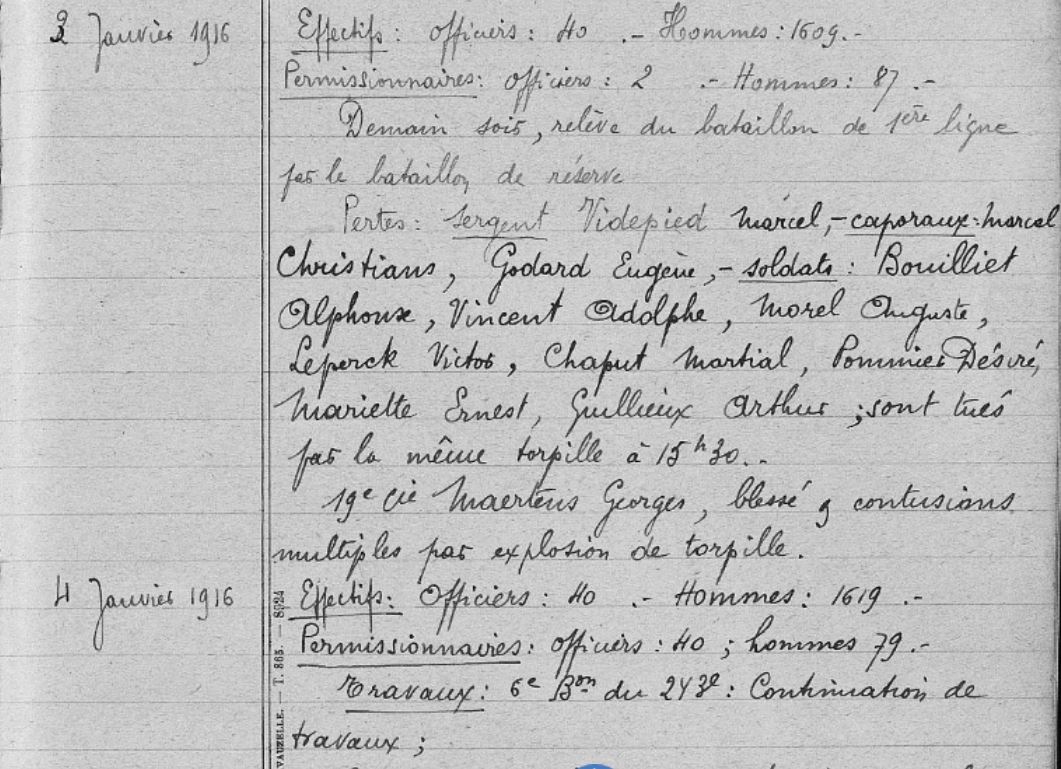 3 Janvier 1916
Effectifs : Officiers : 40 .- Hommes : 1609.-
Permissionnaires : Officiers : 2 .- Hommes : 87 .-
Demain soir, relève du bataillon de 1ère ligne
par le bataillon de réserve
Pertes : Sergent Videpied Marcel, - caporaux : Marcel
Christians, Godard Eugène, - soldats : Bouilliet
Alphonse, Vincent Adolphe, Morel Auguste,
Leperck Victor, Chaput Martial, Pommier Désiré,
Mariette Ernest, Guillieux Arthur ; sont tués
par la même torpille à 15h30.-
19e Cie Maertens Georges, blessé, contusions
multiples par explosion de torpille.
4 Janvier 1916
Effectifs : Officiers : 40 .- Hommes : 1619 .-
Permissionnaires : officiers : 40 ; hommes 79.-
Travaux : 6e Bon du 243e : Continuation de
travaux ;
VAUZELLE. — T. 865. — 8924